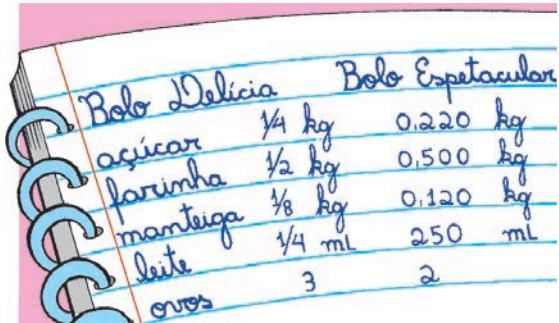 Bolo Delícia Bolo Espetacular
açúcar 1/4 kg 0,220 kg
farinha 1/2 kg 0,500 kg
manteiga 1/8 kg 0,120 kg
leite 1/4 mL 250 mL
ovos 3 2